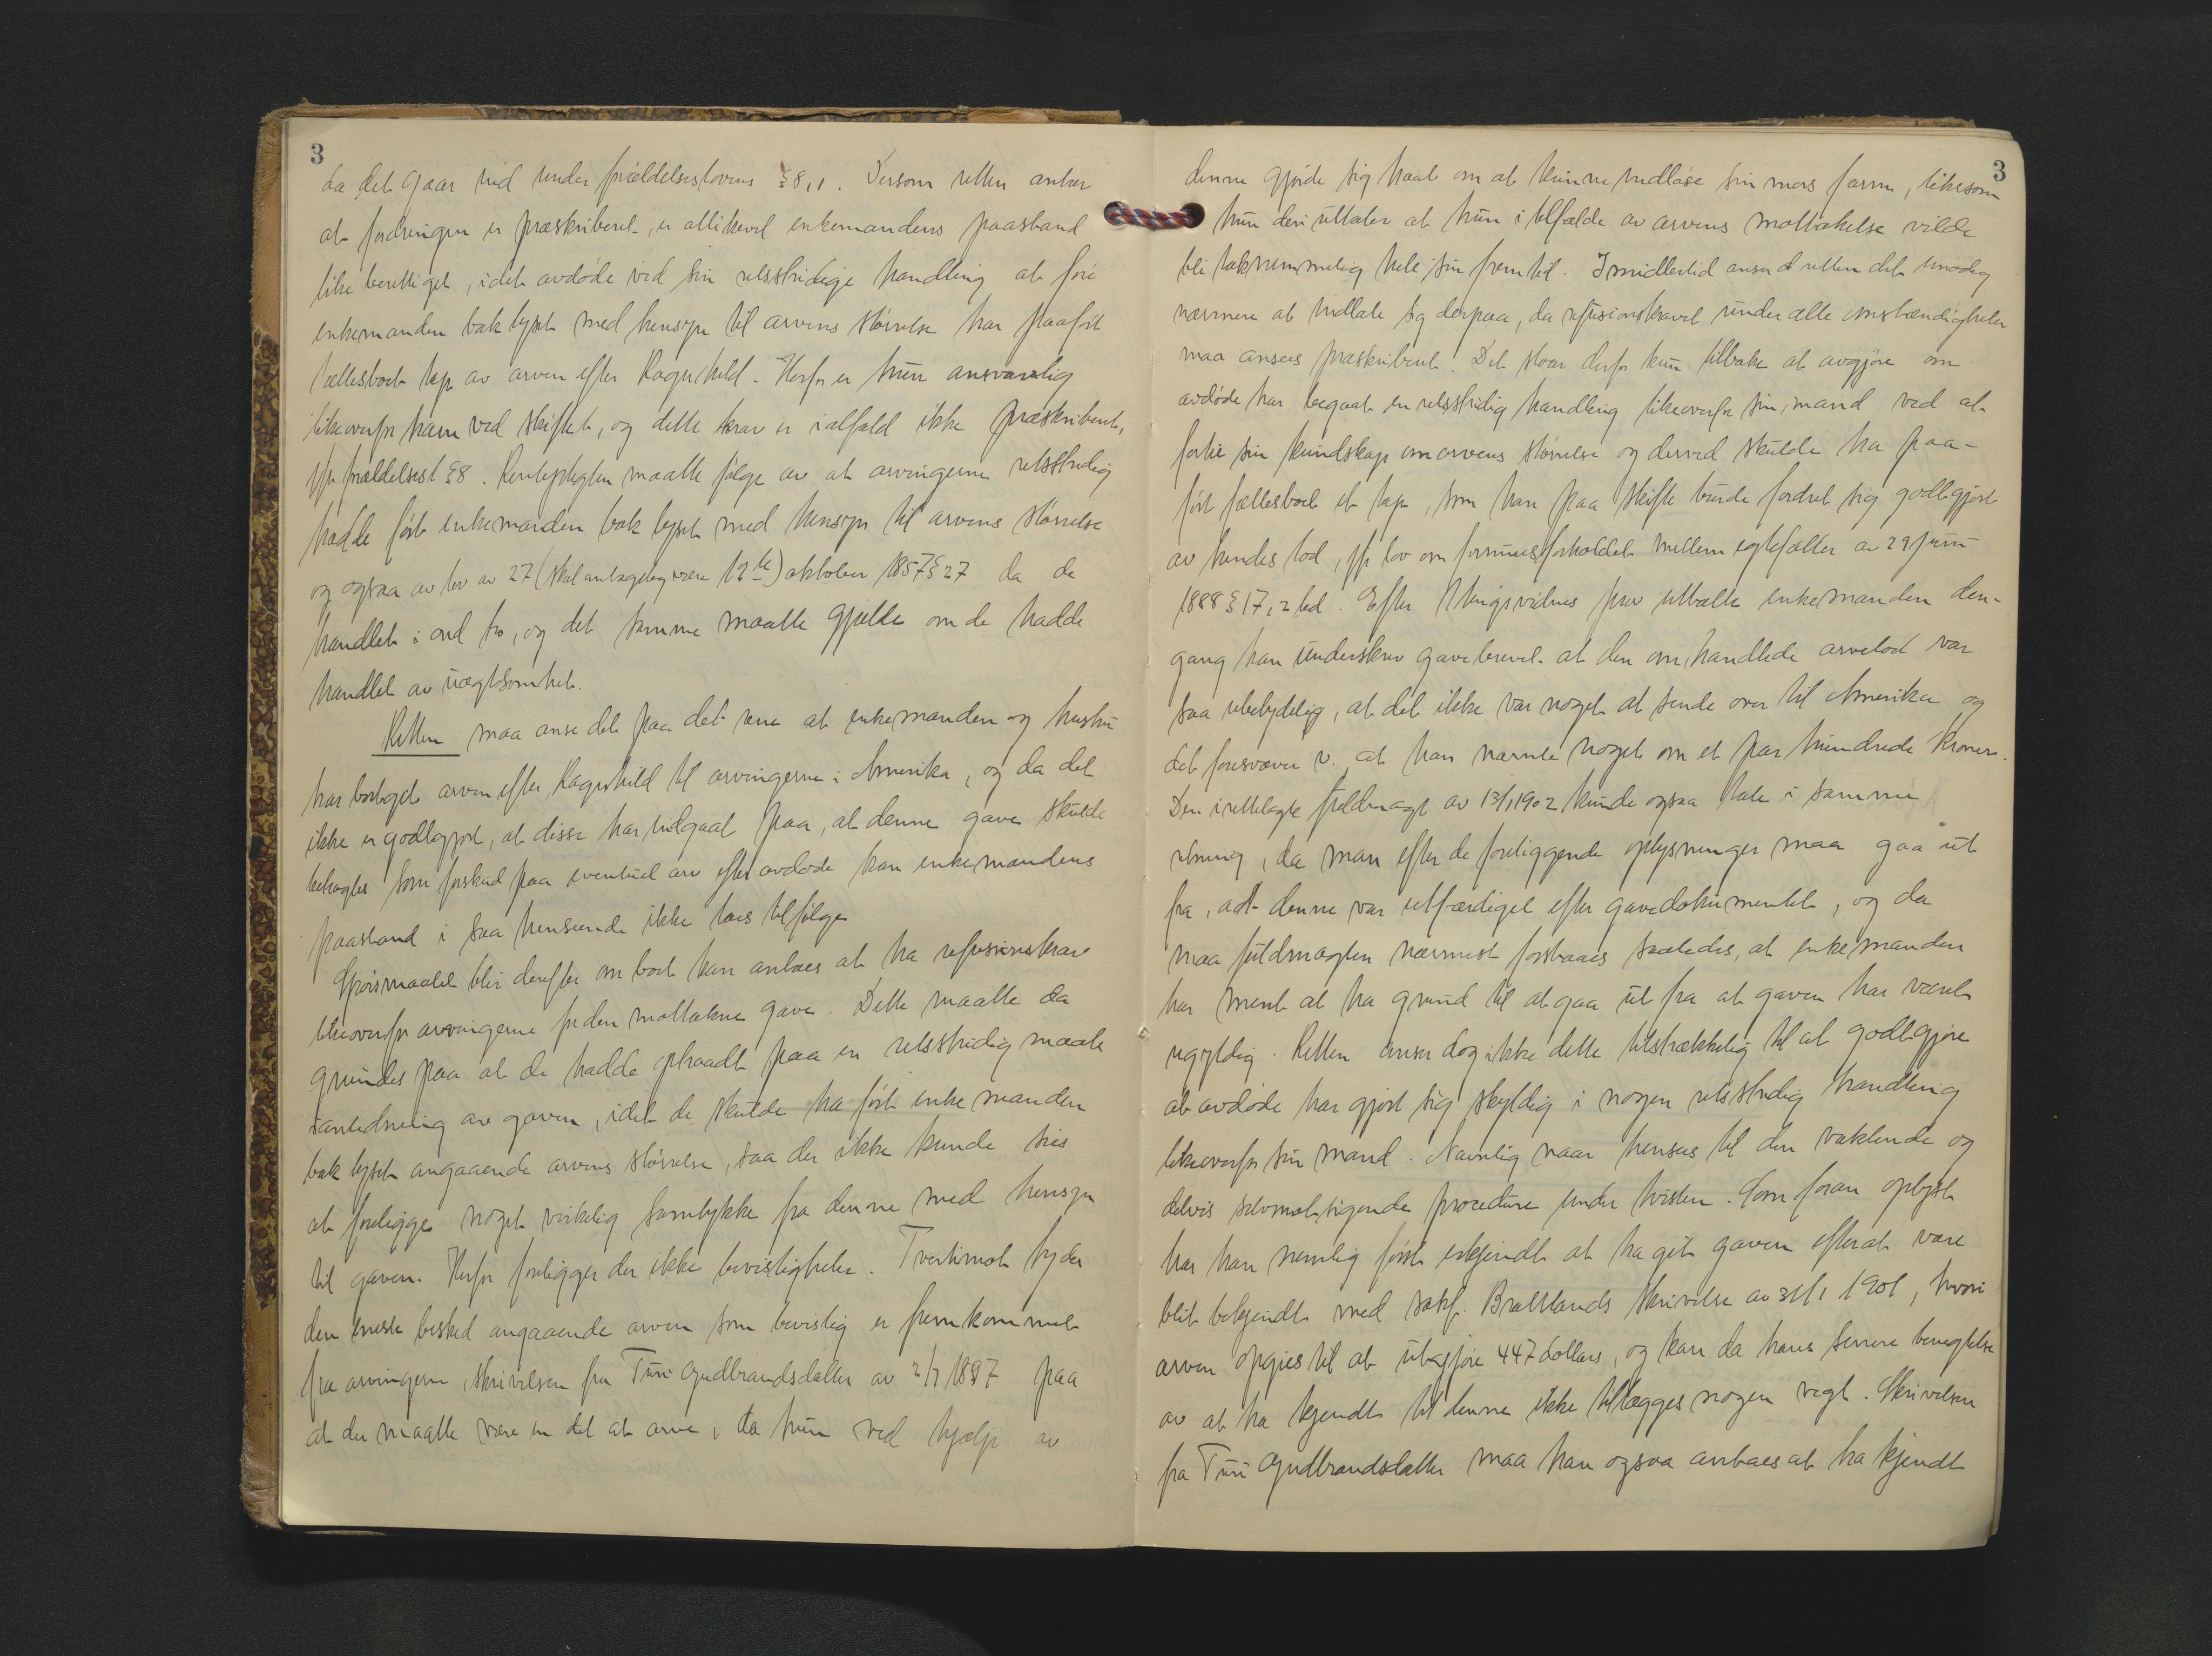 3
da det gaar ind under forældelseslovens §8,1. Dersom retten antar
at fordringen er præskriberet, er allikevel enkemandens paastand
like berettiget, idet avdøde ved sin retsstridige handling at føre
enkemanden bak lyset med hensyn til arvens størrelse har paaført
fællesboet tap av arven efter Ragnhild. Herfor er hun ansvarlig
likeoverfor ham ved skiftet, og dette krav er ialfald ikke præskriberet,
jfr forældelsesl §8. Rentepligten maatte følge av at arvingerne retsstridig
hadde ført enkemanden bak lyset med hensyn til arvens størrelse
og ogsaa av lov av 27 (skal antagelig være 12te) oktober 1857 § 27 da de
handlet i ond tro, og det samme maatte gjælde om de hadde
handlet av uagtsomhet.
Retten maa anse det paa det rene at enkemanden og hustru
har bortgit arven efter Ragnhild til arvingerne i Amerika, og da det
ikke er godtgjort, at disse har indgaat paa, at denne gave skulde
betragtes som forskud paa eventuel arv efter avdøde kan enkemandens
paastand i saa henseende ikke taes tilfølge.
Spørsmaalet blir derefter om boet kan antaes at ha refusionskrav
likeoverfor arvingerne for den mottatne gave. Dette maatte da
grundes paa at de hadde optraadt paa en retsstridig maate
i anledning av gaven, idet de skulde ha ført enkemanden
bak lyset angaaende arvens størrelse, saa der ikke kunde sies
at foreligge noget virkelig samtykke fra denne med hensyn
til gaven. Herfor foreligger der ikke bevisligheter. Tvertimot tyder
den eneste besked angaaende arven som bevislig er fremkommet
fra arvingerne, skrivelsen fra Turi Gudbrandsdatter av 2/7 1897 paa
at der maatte være en del at arve, da hun ved hjælp av
3
denne gjorde sig haab om at kunne indløse sin mors farm, likesom
hun deri uttaler at hun i tilfælde av arvens mottakelse vilde
bli taknemmelig hele sin fremtid. Imidlertid anser retten det unødig
nærmere at indlate sig derpaa, da refusionskravet under alle omstændigheter
maa ansees præskriberet. Det staar derfor kun tilbake at avgjøre om
avdøde har begaat en retsstridig handling likeoverfor sin mand ved at
fortie sin kundskap om arvens størrelse og derved skulde ha paa-
ført fællesboet et tap, som han paa skifte burde fordret sig godtgjort
av hendes lod, jfr lov om formuesforholdet mellem egtefæller av 29 juni
1888 § 17, 2 led. Efter tingsvidnes prov uttalte enkemanden den-
gang han underskrev gavebrevet at den omhandlede arvelod var
saa ubetydelig, at det ikke var noget at sende over til Amerika og
det foresvæver v. at han nævnte noget om et par hundrede kroner.
Den irettelagte fuldmagt av 13/1 1902 kunde ogsaa tale i samme
retning, da man efter de foreliggende oplysninger maa gaa ut
fra, at denne var utfærdiget efter gavedokumentet, og da
maa fuldmagten nærmest forstaaes saaledes, at enkemanden
har ment at ha grund til at gaa ut fra at gaven har været
ugyldig. Retten anser dog ikke dette tilstrækkelig til at godtgjøre
at avdøde har gjort sig skyldig i nogen retsstridig handling
likeoverfor sin mand. Navnlig naar hensees til den vaklende og
delvis selvmotsigende procedure under tvisten. Som foran oplyst
har han nemlig først erkjendt at ha git gaven efterat være
blit bekjendt med sakf. Bratlands skrivelse av 31/1 1901, hvori
arven opgies til at utgjøre 447 dollars, og kan da hans senere benegtelse
av at ha kjendt til denne ikke tillægges nogen vegt. Skrivelsen
fra Turi Gudbrandsdatter maa han ogsaa antaes at ha kjendt